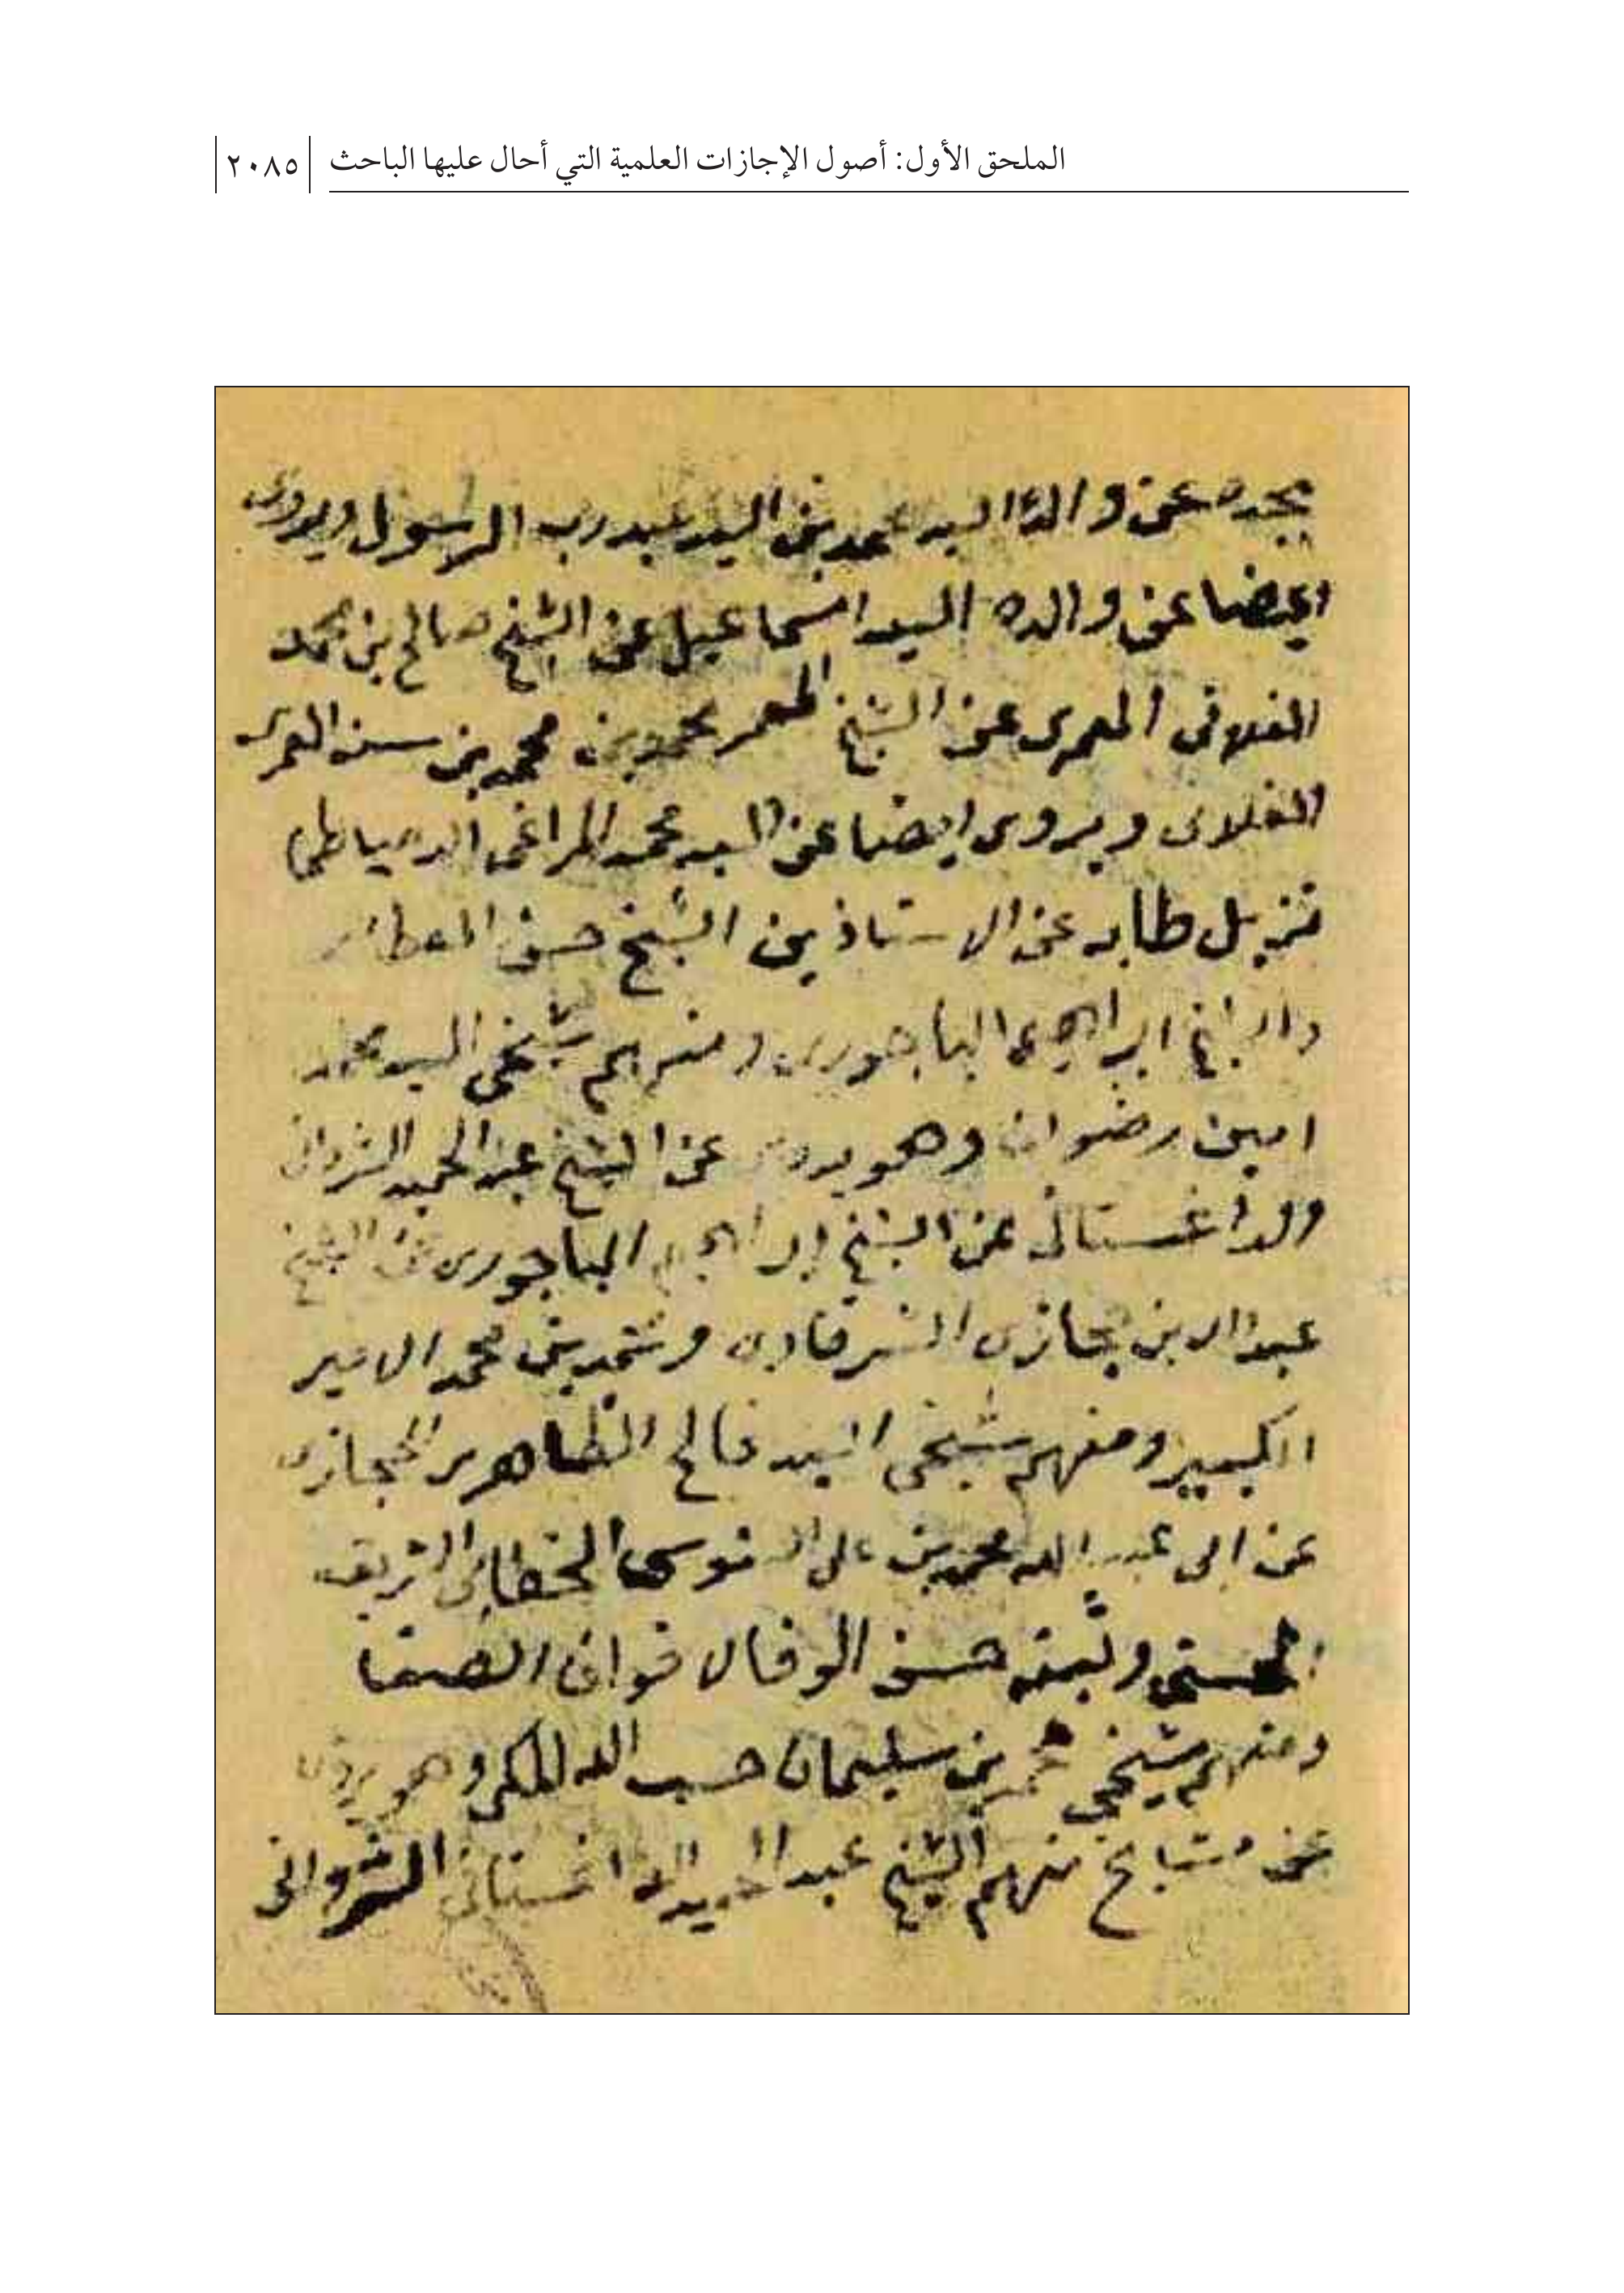 الملحق الأول: أصول الإجازات العلمية التي أحال عليها الباحث
٢٠٨٥
بجده عن والده السيد محمد بن السيد عبد رب الرسول ويروى
ايضا عن والده السيد اسماعيل عن الشيخ صالح بن محمد
الفلانى العمرى عن الشيخ المعمر محمد بن محمد بن سنه العمرى
الفلانى ويروى ايضا عن السيد محمد المراغى الدمياطى
نزيل طابه عن الاستاذين الشيخ حسن العطار
والشيخ ابراهيم الباجورى ومنهم شيخى السيد محمد
امين رضوان وهو يروى عن الشيخ عبد الحميد الشروانى
والداغستانى عن الشيخ ابراهيم الباجورى عن الشيخ
عبد الله بن حجازى الشرقاوى ومحمد بن محمد الامير
الكبير ومنهم شيخى السيد فالح الظاهرى الحجازى
عن ابى عبد الله محمد بن على السنوسى الخطابى الشريف
الحسنى وثبته حسن الوفا لاخوان الصفا
ومنهم شيخى محمد بن سليمان حسب الله المكى وهو يروى
عن مشايخ منهم الشيخ عبد الحميد الداغستانى الشروانى